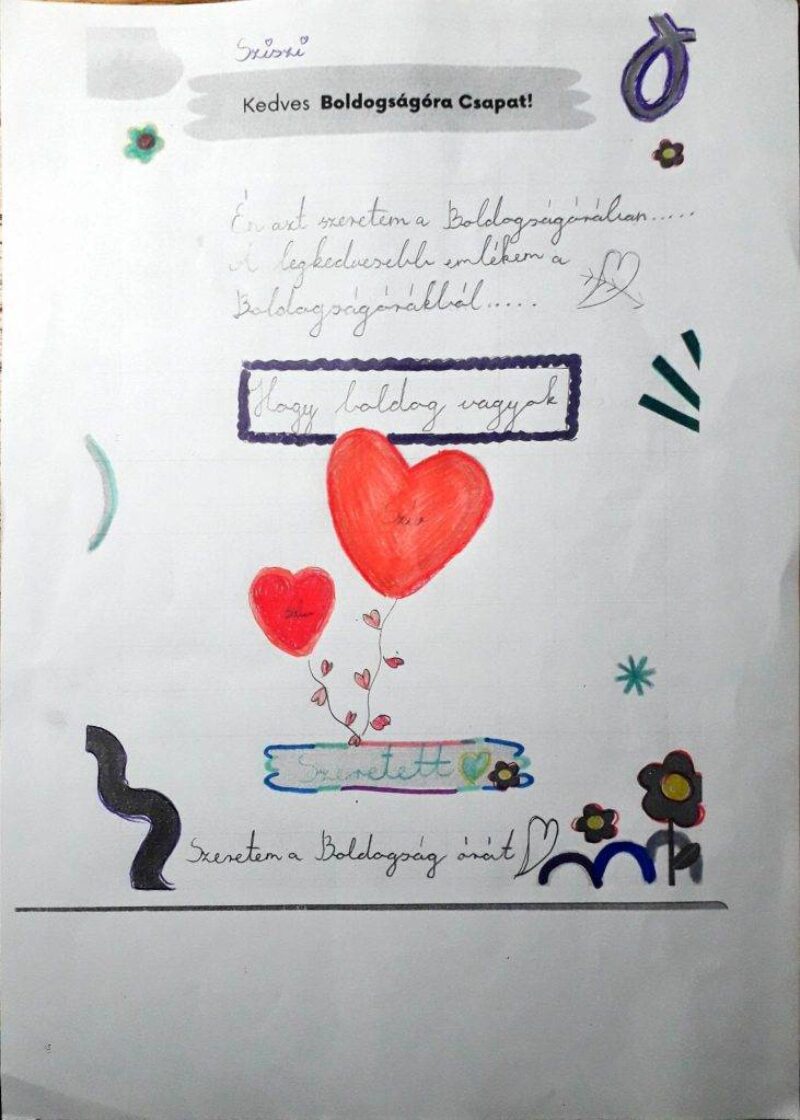 Sziszi
Kedves Boldogságóra Csapat!
Én azt szeretem a Boldogságórában.....
A legkedvesebb emlékem a
Boldogságórákból.....
Hogy boldog vagyok
Szív
szív
Szeretett
Szeretem a Boldogság órát